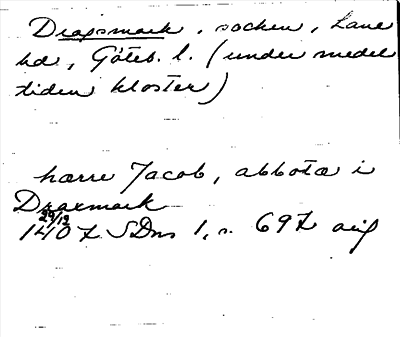 Dragsmark, socken, Lane
hd, Göteb. l. (under medel
tiden kloster)
hærre Jacob, abbota i
Draxmark
29/12
1407 SDns 1, s. 697 orig